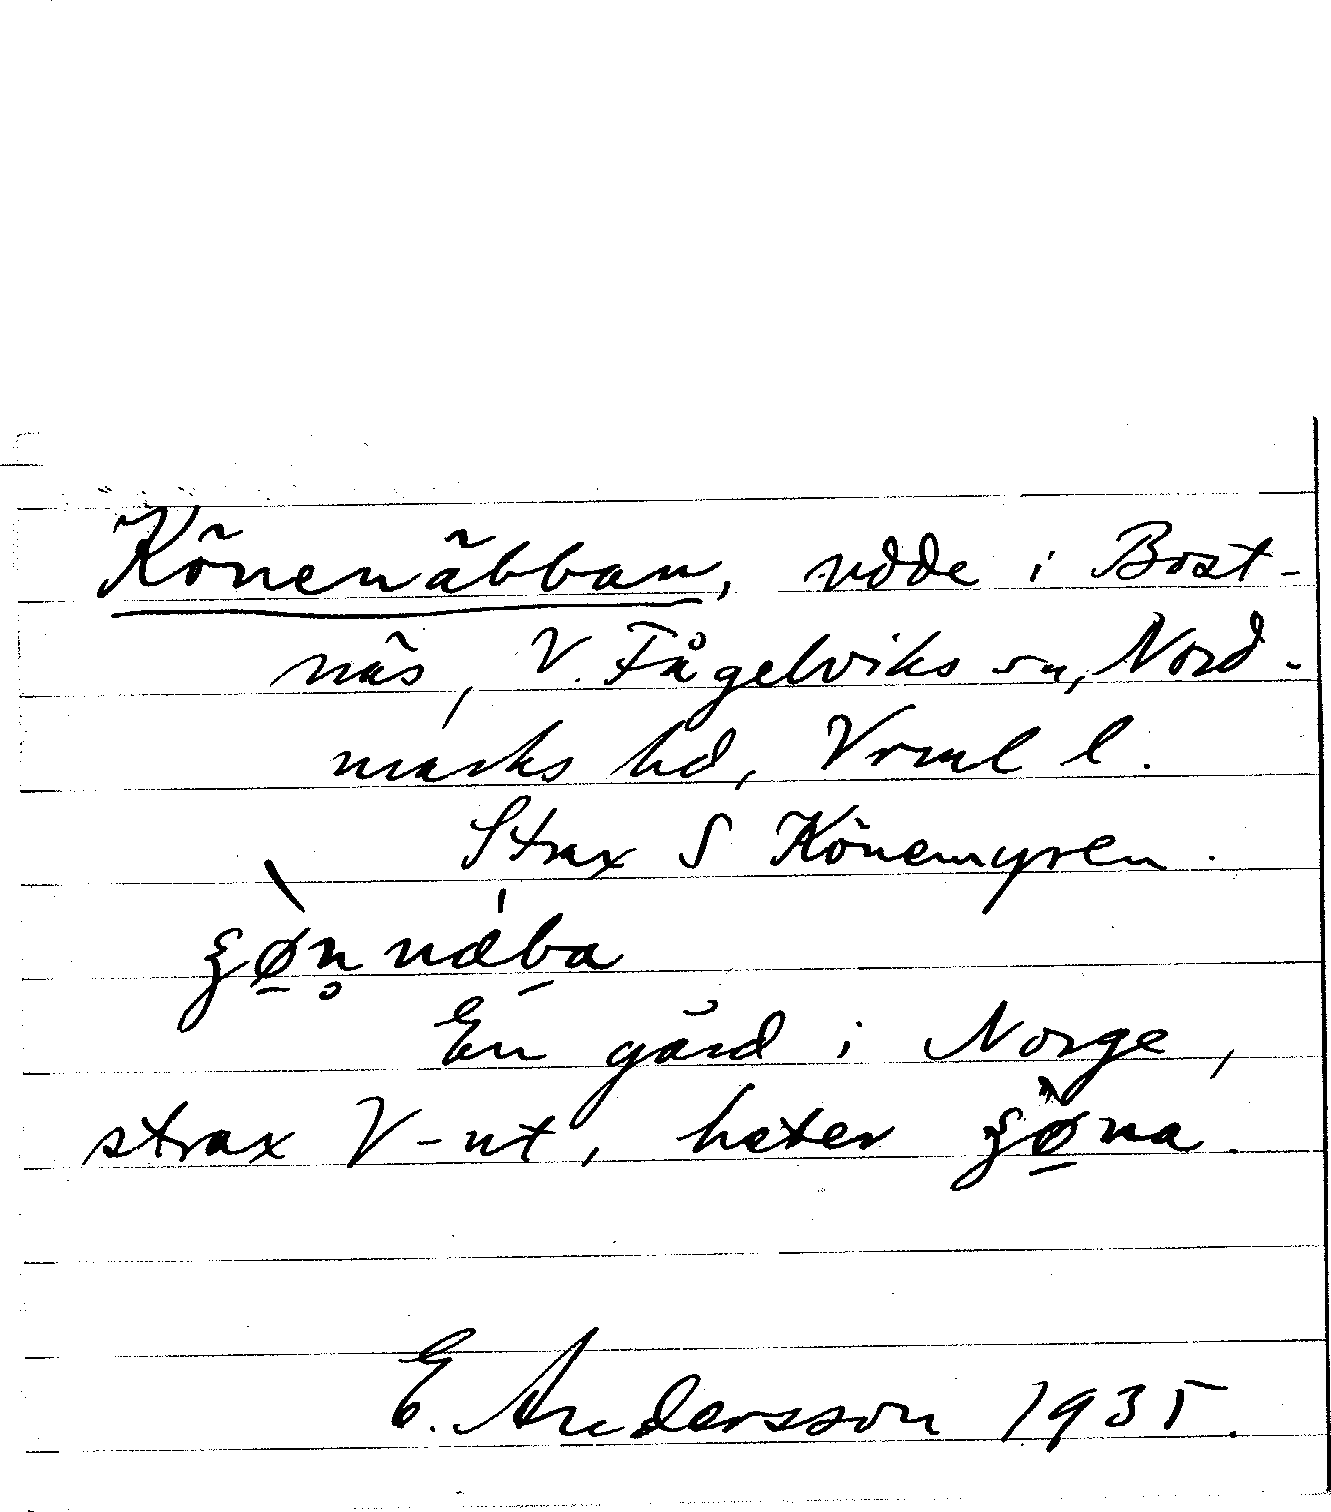 Könenäbban, udde i Bost-
näs, V. Fågelviks sn, Nord-
marks hd, Vrml l.
Strax S Könemyren.
En gård i Norge,
strax V-ut, heter
E. Andersson 1935.